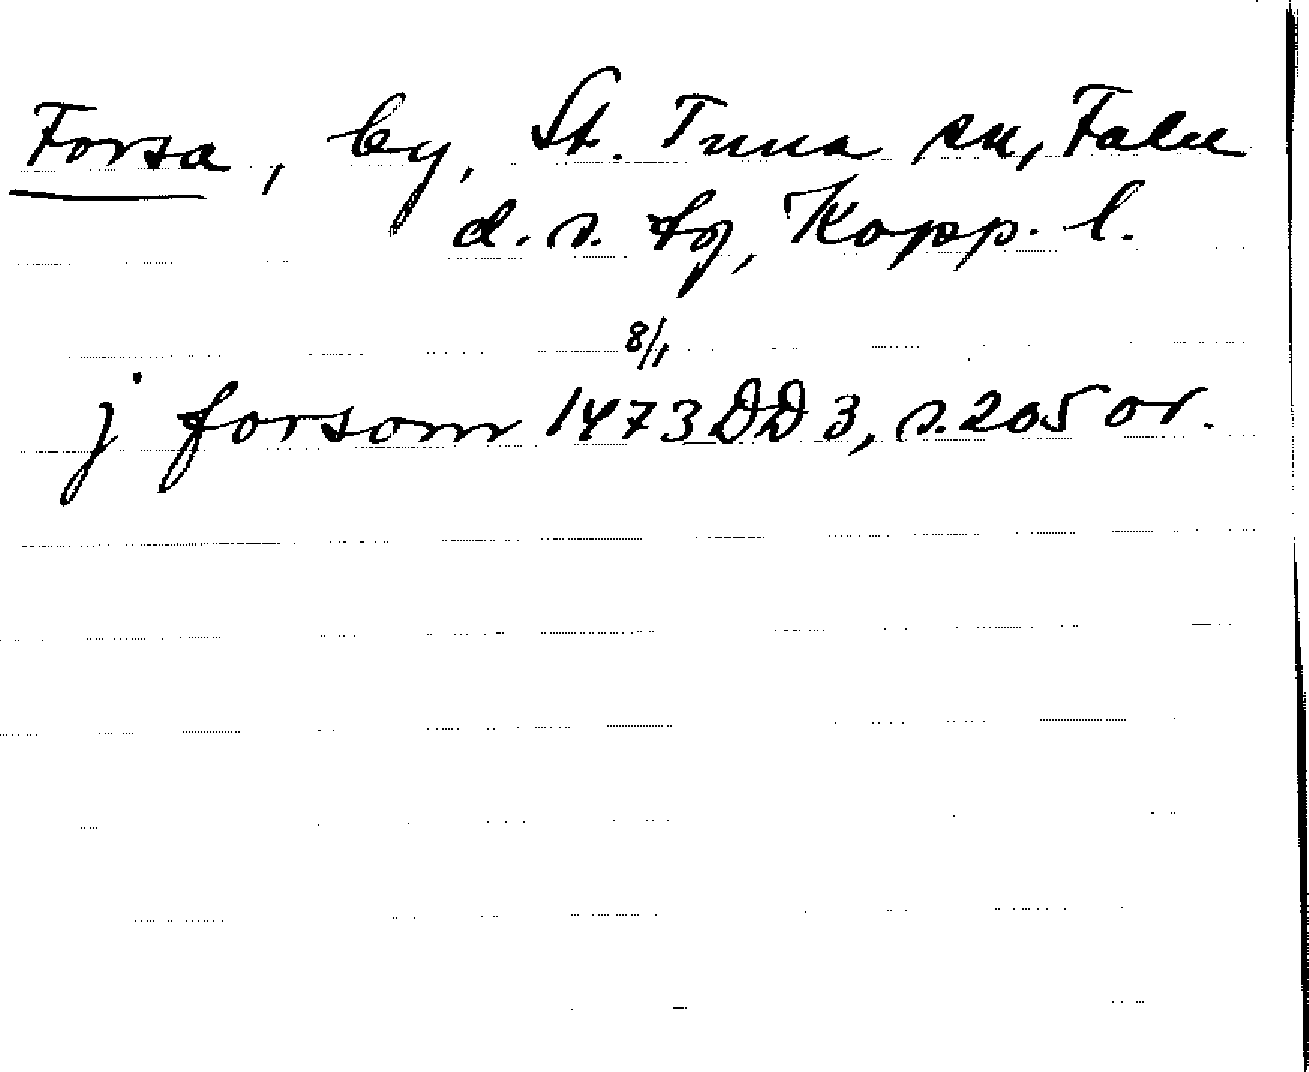 Forsa, by, St. Tuna sn, Falu
d. s. fg, Kopp. l.
8/1
j forsom 1473 DD 3, s. 205 or.